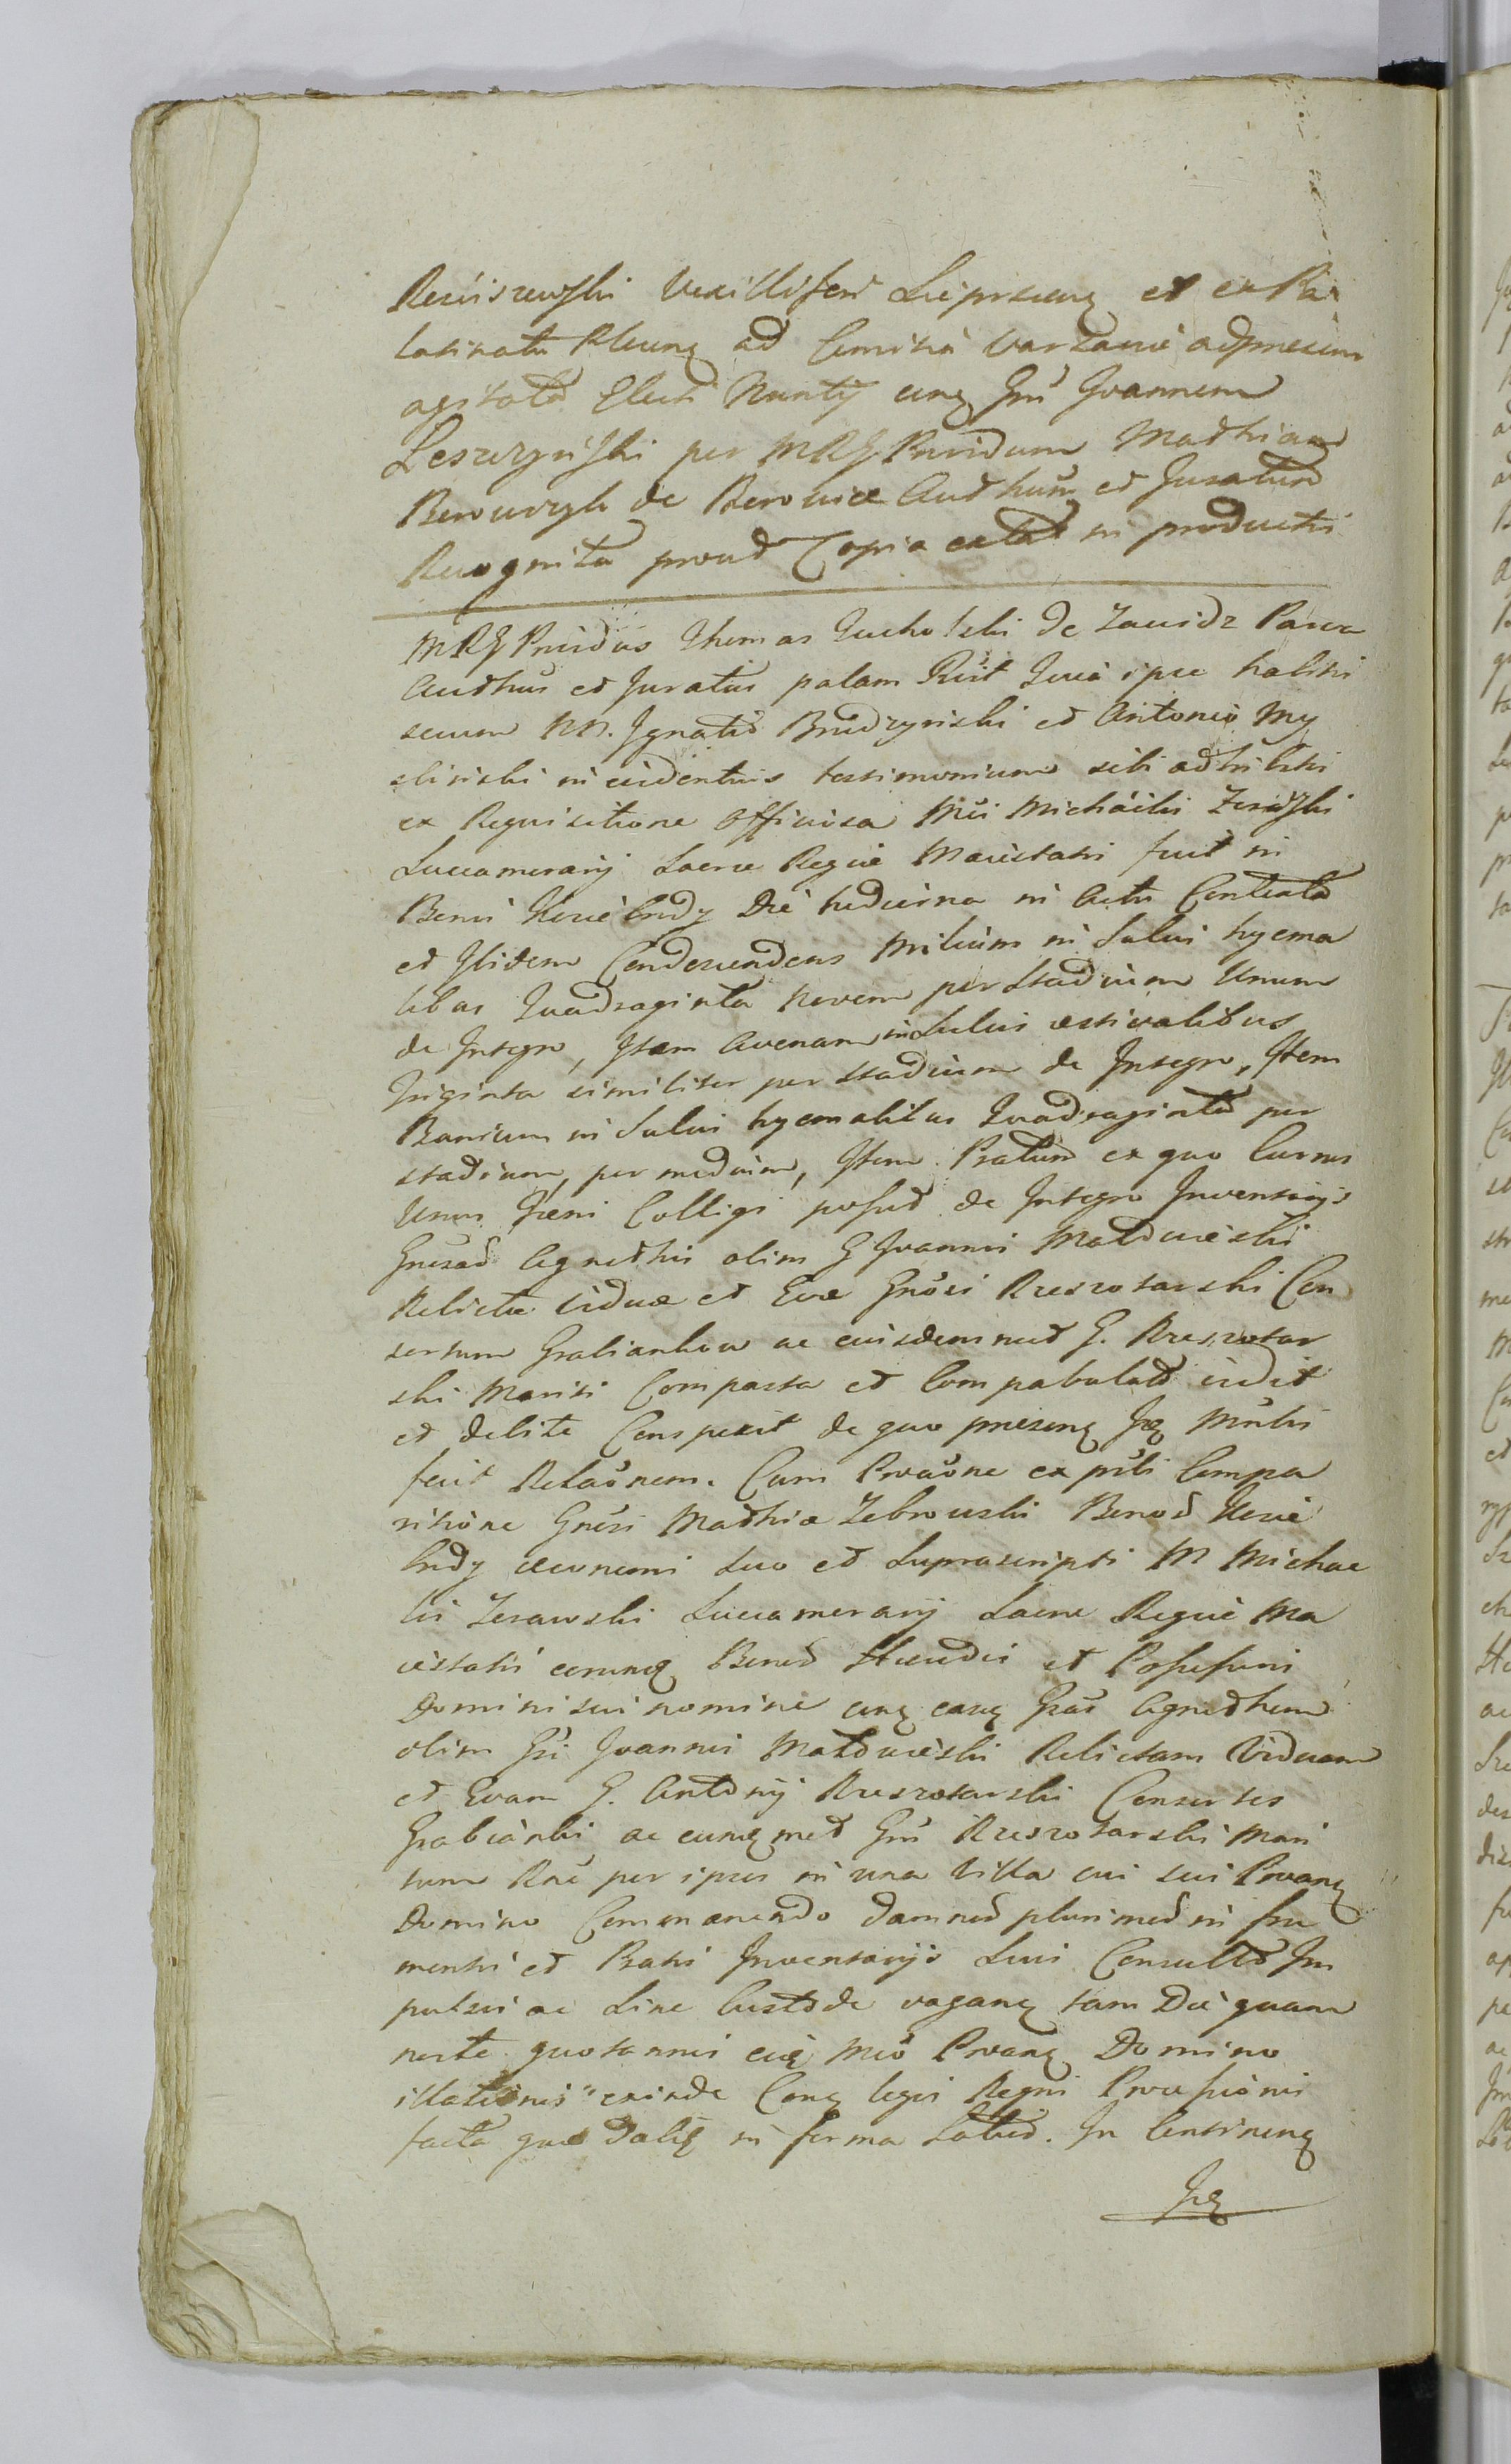 Reviszewski Vexilliferi Lieprzceng et ex Pa
latinatu Plceng ad Comitia Varsavia adpraesens
agitata Electi Nuntij cumq Gnu Joannem
Leszczyński per MRG Pruidum Mathiam
Borowczyk de Borowice Authum et Juratum
Recognita proud Copia extat in productis
MRG Pruidus Thomas Zucholski de Zawidz Parva
Authus et Juratus palam Ruit Quia ipse habitis
secum NN. Ignatio Brudzynski et Antonio My
slinski in evidentius testimonium sibi adhibitis
ex Requisitione Officiosa Mci Michaelis Zerawski
Succamerarij Sacrae Regiae Maiestatis fuit in
Bonis Die hodierna in Actu Contenta
et Ibidem Condescendens Milium in Sulcis hyema
libus Quadraginta Novem per Stadium Unum
de Integro, Item Avenam in Sulcis aestivalibus
Triginta similiter per Stadium de Integro, Item
Panicum in Sulcis hyemalibus Quadraginta per
stadium, per medium, Item Pratum ex quo Currus
Unus Foeni Colligi possud de Integro Inventarijs
Gnesad Agnethis olim G Joannis Maldweiski
Relictae Viduae et Evae Gnosi Rzeszotarski Con
sortum Grabiankow ac eiusdemmed G. Rzeszotar
ski Mariti Compasta et Compabulata vidit
et debite Conspexit de quo praesenq Jrq Mntri
fecit Relaonem. Cum Proaone ex psti Compa
ritione Gnesi Mathiae Zebrowski Bonod
Oeconomi Suo et Suprascripti M Michae
lis Zerawski Succamerarij Sacrae Regiae Ma
iestatis eorumq Bonod Haeredis et Possessoris
Domini sui nomine cunq easq Gnas Agnethem
olim Gsi Joannis Maldweiski Relictam Viduam
et Evam G. Antonij Rzeszotarski Consortes
Grabianki ac eunqmed Gnu Rzeszotarski Mari
tum Rne per ipsos in una Villa cui sui Proanq
Domino Commanendo damnod plurimod in fru
mentis et Pratis Inventarijs Suis Consulto Im
pulsis ac Sine Custode vaganq tam Die quam
nocte quotannis eiq Mco Proanq Domino
illationis exinde Conq legis Regni Processionis
facta quae dabiq in forma Latiod. In Continenq
Jrq